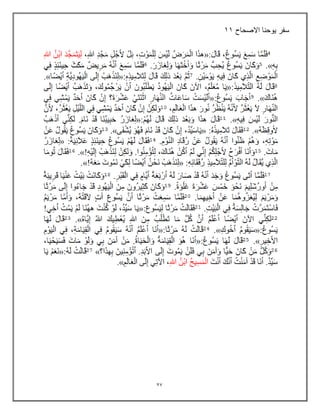 سفر يوحنا الاصحاح ١١
4فَلَمَّا سَمِعَ يَسُوعُ، قَالَ:«هذَا الْمَرَضُ لَيْسَ لِلْمَوْتِ، بَلْ لأَجْلِ مَجْدِ اللهِ، لِيَتَمَجَّدَ ابْنُ اللهِ
بِهِ». 5وَكَانَ يَسُوعُ يُحِبُّ مَرْثَا وَأُخْتَهَا وَلِعَازَرَ. 6فَلَمَّا سَمِعَ أَنَّهُ مَرِيضٌ مَكَثَ حِينَئِذٍ فِي
الْمَوْضِعِ الَّذِي كَانَ فِيهِ يَوْمَيْنِ. 7ثُمَّ بَعْدَ ذلِكَ قَالَ لِتَلاَمِيذِهِ:«لِنَذْهَبْ إِلَى الْيَهُودِيَّةِ أَيْضًا».
8قَالَ لَهُ التَّلاَمِيذُ:«يَا مُعَلِّمُ، الآنَ كَانَ الْيَهُودُ يَطْلُبُونَ أَنْ يَرْجُمُوكَ، وَتَذْهَبُ أَيْضًا إِلَى
هُنَاكَ». 9أَجَابَ يَسُوعُ:«أَلَيْسَتْ سَاعَاتُ النَّهَارِ اثْنَتَيْ عَشْرَةَ؟ إِنْ كَانَ أَحَدٌ يَمْشِي فِي
النَّهَارِ لاَ يَعْثُرُ لأَنَّهُ يَنْظُرُ نُورَ هذَا الْعَالَمِ، 10وَلكِنْ إِنْ كَانَ أَحَدٌ يَمْشِي فِي اللَّيْلِ يَعْثُرُ، لأَنَّ
النُّورَ لَيْسَ فِيهِ». 11قَالَ هذَا وَبَعْدَ ذلِكَ قَالَ لَهُمْ:«لِعَازَرُ حَبِيبُنَا قَدْ نَامَ. لكِنِّي أَذْهَبُ
لأُوقِظَهُ». 12فَقَالَ تَلاَمِيذُهُ:«يَاسَيِّدُ، إِنْ كَانَ قَدْ نَامَ فَهُوَ يُشْفَى». 13وَكَانَ يَسُوعُ يَقُولُ عَنْ
مَوْتِهِ، وَهُمْ ظَنُّوا أَنَّهُ يَقُولُ عَنْ رُقَادِ النَّوْمِ. 14فَقَالَ لَهُمْ يَسُوعُ حِينَئِذٍ عَلاَنِيَةً:«لِعَازَرُ
مَاتَ. 15وَأَنَا أَفْرَحُ لأَجْلِكُمْ إِنِّي لَمْ أَكُنْ هُنَاكَ، لِتُؤْمِنُوا. وَلكِنْ لِنَذْهَبْ إِلَيْهِ!». 16فَقَالَ تُومَا
الَّذِي يُقَالُ لَهُ التَّوْأَمُ لِلتَّلاَمِيذِ رُفَقَائِهِ:«لِنَذْهَبْ نَحْنُ أَيْضًا لِكَيْ نَمُوتَ مَعَهُ!».
17فَلَمَّا أَتَى يَسُوعُ وَجَدَ أَنَّهُ قَدْ صَارَ لَهُ أَرْبَعَةُ أَيَّامٍ فِي الْقَبْرِ. 18وَكَانَتْ بَيْتُ عَنْيَا قَرِيبَةً
مِنْ أُورُشَلِيمَ نَحْوَ خَمْسَ عَشْرَةَ غَلْوَةً. 19وَكَانَ كَثِيرُونَ مِنَ الْيَهُودِ قَدْ جَاءُوا إِلَى مَرْثَا
وَمَرْيَمَ لِيُعَزُّوهُمَا عَنْ أَخِيهِمَا. 20فَلَمَّا سَمِعَتْ مَرْثَا أَنَّ يَسُوعَ آتٍ لاَقَتْهُ، وَأَمَّا مَرْيَمُ
فَاسْتَمَرَّتْ جَالِسَةً فِي الْبَيْتِ. 21فَقَالَتْ مَرْثَا لِيَسُوعَ:«يَا سَيِّدُ، لَوْ كُنْتَ ههُنَا لَمْ يَمُتْ أَخِي!
22لكِنِّي الآنَ أَيْضًا أَعْلَمُ أَنَّ كُلَّ مَا تَطْلُبُ مِنَ اللهِ يُعْطِيكَ اللهُ إِيَّاهُ». 23قَالَ لَهَا
يَسُوعُ:«سَيَقُومُ أَخُوكِ». 24قَالَتْ لَهُ مَرْثَا:«أَنَا أَعْلَمُ أَنَّهُ سَيَقُومُ فِي الْقِيَامَةِ، فِي الْيَوْمِ
الأَخِيرِ». 25قَالَ لَهَا يَسُوعُ:«أَنَا هُوَ الْقِيَامَةُ وَالْحَيَاةُ. مَنْ آمَنَ بِي وَلَوْ مَاتَ فَسَيَحْيَا،
26وَكُلُّ مَنْ كَانَ حَيًّا وَآمَنَ بِي فَلَنْ يَمُوتَ إِلَى الأَبَدِ. أَتُؤْمِنِينَ بِهذَا؟» 27قَالَتْ لَهُ:«نَعَمْ يَا
سَيِّدُ. أَنَا قَدْ آمَنْتُ أَنَّكَ أَنْتَ الْمَسِيحُ ابْنُ اللهِ، الآتِي إِلَى الْعَالَمِ».